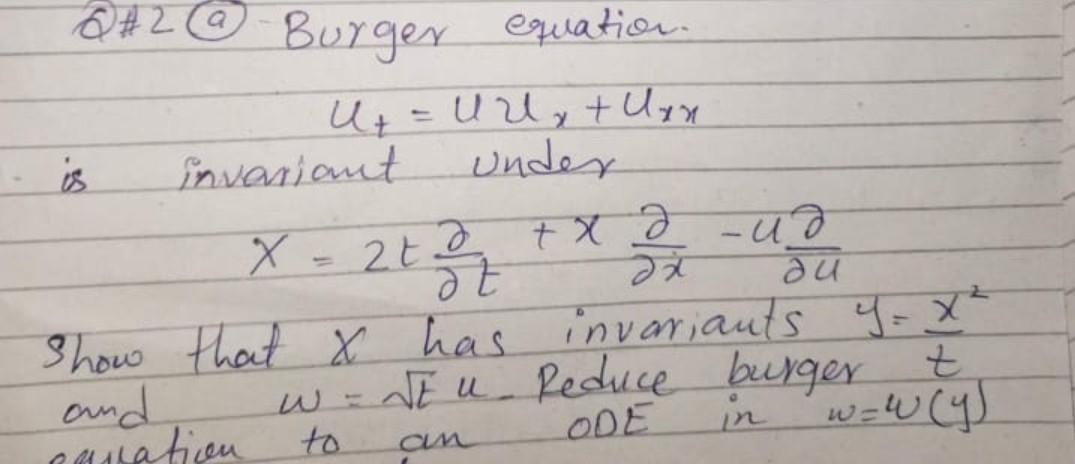 Q#2 (a) - Burger equation.
u_t = u u_x + u_xx
is invariant under
X = 2t ∂/∂t + x ∂/∂x - u ∂/∂u
Show that X has invariants y = x²/t
and w = √t u. Reduce burger
equation to an ODE in w = w(y)